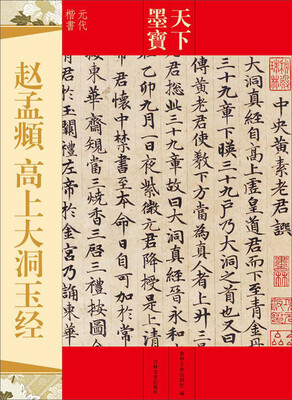 天下
墨寶
元代
楷書
赵孟頫 高上大洞玉经
中央黄素老君譔
大洞真經自高上虛皇道君而下至青金丹
三十九章下暎三十九戶乃大洞之首也又曰
黄老君使教下方當為真人者上升三
君揔此三十九章大洞真經晉永和
乙卯九月一日夜紫微元君降授是上清
君懷中禁書至本命日自可
按東華齋規當三燒香三啓三禮按圖
君於玉闕禮左帝於金宮乃誦東